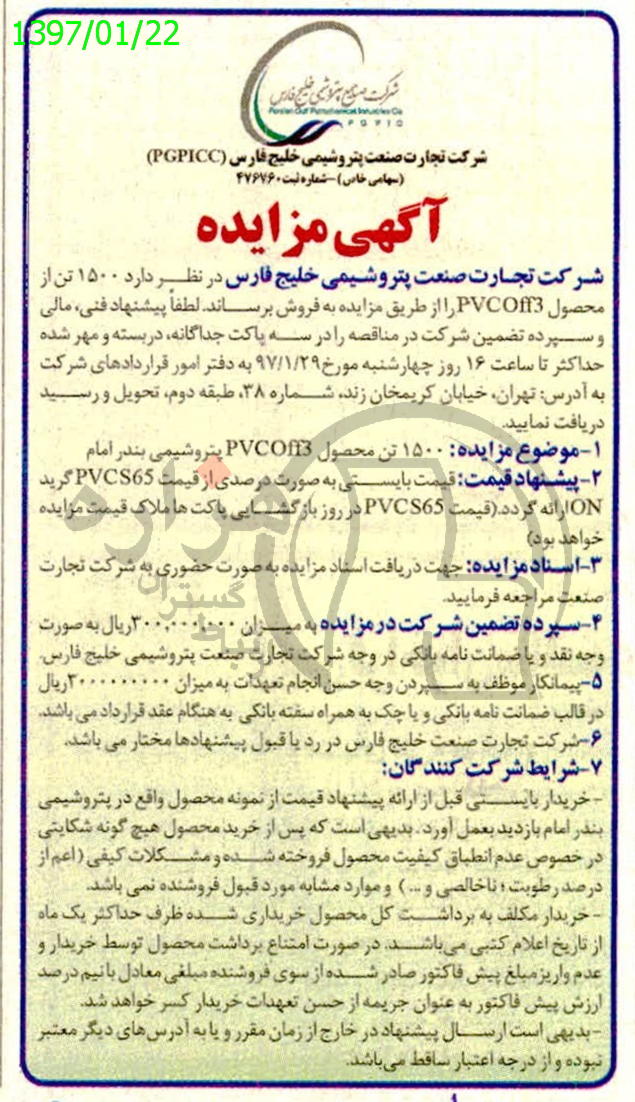 1397/01/22
شرکت صنایع پتروشیمی خلیج فارس
Persian Gulf Petrochemical Industries Co
PGPIC
شرکت تجارت صنعت پتروشیمی خلیج فارس (PGPICC)
(سهامی خاص) -شماره ثبت ۴۷۶۷۶۰
آگهی مزایده
شرکت تجارت صنعت پتروشیمی خلیج فارس در نظر دارد ۱۵۰۰ تن از
محصول PVCOff3 را از طریق مزایده به فروش برساند. لطفاً پیشنهاد فنی، مالی
و سپرده تضمین شرکت در مناقصه را در سه پاکت جداگانه، دربسته و مهر شده
حداکثر تا ساعت ۱۶ روز چهارشنبه مورخ ۹۷/۱/۲۹ به دفتر امور قراردادهای شرکت
به آدرس: تهران، خیابان کریمخان زند، شماره ۳۸، طبقه دوم، تحویل و رسید
دریافت نمایید.
۱-موضوع مزایده: ۱۵۰۰ تن محصول PVCOff3 پتروشیمی بندر امام
۲-پیشنهاد قیمت: قیمت بایستی به صورت درصدی از قیمت PVCS65 گرید
ON ارائه گردد.(قیمت PVCS65 در روز بازگشایی پاکت ها ملاک قیمت مزایده
خواهد بود)
۳-اسناد مزایده: جهت دریافت اسناد مزایده به صورت حضوری به شرکت تجارت
صنعت مراجعه فرمایید.
۴-سپرده تضمین شرکت در مزایده به میزان ۳۰۰,۰۰۰,۰۰۰ ریال به صورت
وجه نقد و یا ضمانت نامه بانکی در وجه شرکت تجارت صنعت پتروشیمی خلیج فارس.
۵-پیمانکار موظف به سپردن وجه حسن انجام تعهدات به میزان ۲۰۰۰۰۰۰۰۰۰ ریال
در قالب ضمانت نامه بانکی و یا چک به همراه سفته بانکی به هنگام عقد قرارداد می باشد.
۶-شرکت تجارت صنعت خلیج فارس در رد یا قبول پیشنهادها مختار می باشد.
۷-شرایط شرکت کنندگان:
-خریدار بایستی قبل از ارائه پیشنهاد قیمت از نمونه محصول واقع در پتروشیمی
بندر امام بازدید بعمل آورد. بدیهی است که پس از خرید محصول هیچ گونه شکایتی
در خصوص عدم انطباق کیفیت محصول فروخته شده و مشکلات کیفی (اعم از
درصد رطوبت؛ ناخالصی و ...) و موارد مشابه مورد قبول فروشنده نمی باشد.
-خریدار مکلف به برداشت کل محصول خریداری شده ظرف حداکثر یک ماه
از تاریخ اعلام کتبی می باشد. در صورت امتناع برداشت محصول توسط خریدار و
عدم واریز مبلغ پیش فاکتور صادر شده از سوی فروشنده مبلغی معادل با نیم درصد
ارزش پیش فاکتور به عنوان جریمه از حسن تعهدات خریدار کسر خواهد شد.
-بدیهی است ارسال پیشنهاد در خارج از زمان مقرر و یا به آدرس های دیگر معتبر
نبوده و از درجه اعتبار ساقط می باشد.
هزاره
گستران